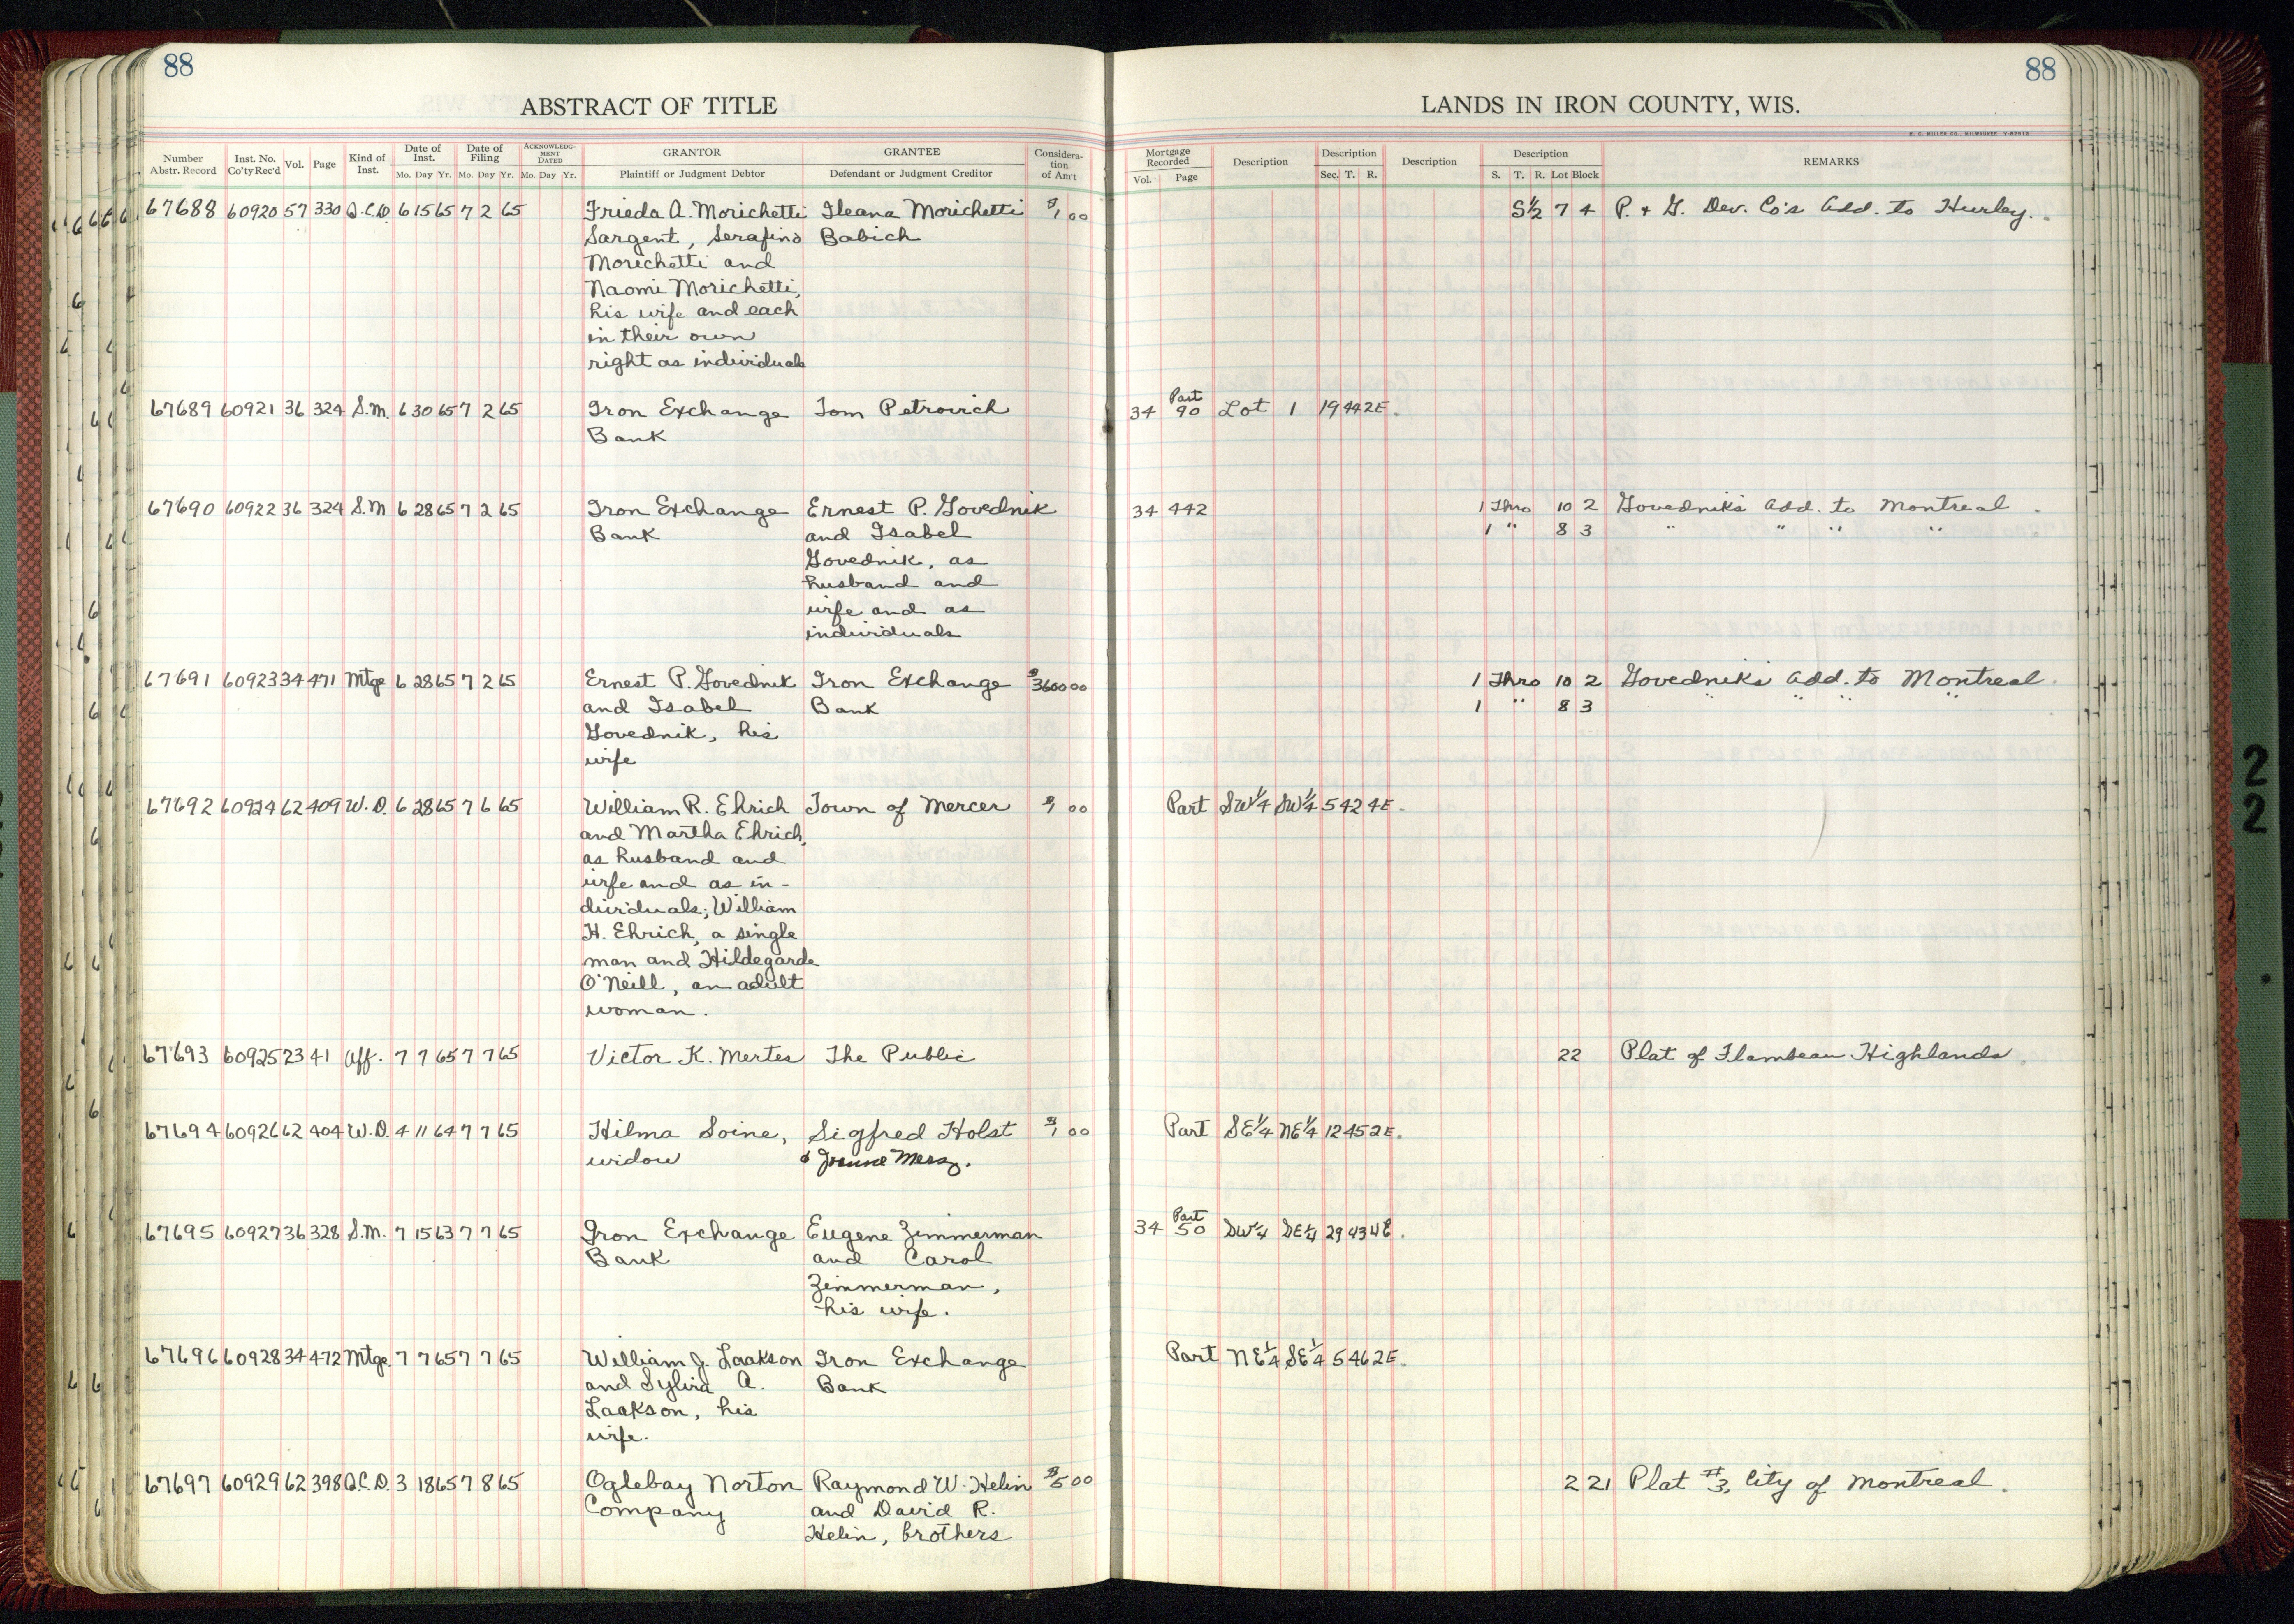 88
88
ABSTRACT OF TITLE
LANDS IN IRON COUNTY, WIS.
H. C. MILLER CO., MILWAUKEE
Number Abstr. Record | Inst. No. Co'ty Rec'd | Vol. | Page | Kind of Inst. | Date of Inst. Mo. Day Yr. | Date of Filing Mo. Day Yr. | ACKNOWLEDGMENT DATED Mo. Day Yr. | GRANTOR Plaintiff or Judgment Debtor | GRANTEE Defendant or Judgment Creditor | Consideration of Am't | Mortgage Recorded Vol. Page | Description | Description Sec. T. R. | Description | Description S. T. R. Lot Block | REMARKS
67688 60920 57 330 Q.C.D. 6 15 65 7 2 65 Frieda A. Morichetti Ileana Morichetti $1 00 S½ 7 4 P. & G. Dev. Co's Add. to Hurley.
Sargent, Serafino Babich
Morichetti and
Naomi Morichetti,
his wife and each
in their own
right as individuals
67689 60921 36 324 S.M. 6 30 65 7 2 65 Iron Exchange Tom Petrovich 34 Part 90 Lot 1 19 44 2E.
Bank
67690 60922 36 324 S.M 6 28 65 7 2 65 Iron Exchange Ernest P. Govednik 34 442 1 Thro 10 2 Govednik's Add. to Montreal.
Bank and Isabel 1 " 8 3 " " " "
Govednik, as
husband and
wife and as
individuals
67691 60923 34 471 Mtge 6 28 65 7 2 65 Ernest P. Govednik Iron Exchange $3600 00 1 Thro 10 2 Govednik's Add. to Montreal.
and Isabel Bank 1 " 8 3 " " " "
Govednik, his
wife
67692 60924 62 409 W.D. 6 28 65 7 6 65 William R. Ehrich Town of Mercer $1 00 Part SW¼ SW¼ 5 42 4E.
and Martha Ehrich,
as husband and
wife and as in-
dividuals; William
H. Ehrich, a single
man and Hildegarde
O'Neill, an adult
woman.
67693 60925 23 41 Aff. 7 7 65 7 7 65 Victor K. Mertes The Public 22 Plat of Flambeau Highlands.
67694 60926 62 404 W.D. 4 11 64 7 7 65 Hilma Soine, Sigfred Holst $1 00 Part SE¼ NE¼ 12 45 2E.
widow &
67695 60927 36 328 S.M. 7 15 63 7 7 65 Iron Exchange Eugene Zimmerman 34 Part 50 SW¼ SE¼ 29 43 4E.
Bank and Carol
Zimmerman,
his wife.
67696 60928 34 472 Mtge. 7 7 65 7 7 65 William J. Laakson Iron Exchange Part NE¼ SE¼ 5 46 2E.
and Sylvia A. Bank
Laakson, his
wife.
67697 60929 62 398 Q.C.D. 3 18 65 7 8 65 Oglebay Norton Raymond W. Helin $5 00 2 21 Plat #3, City of Montreal.
Company and David R.
Helin, brothers
2
2